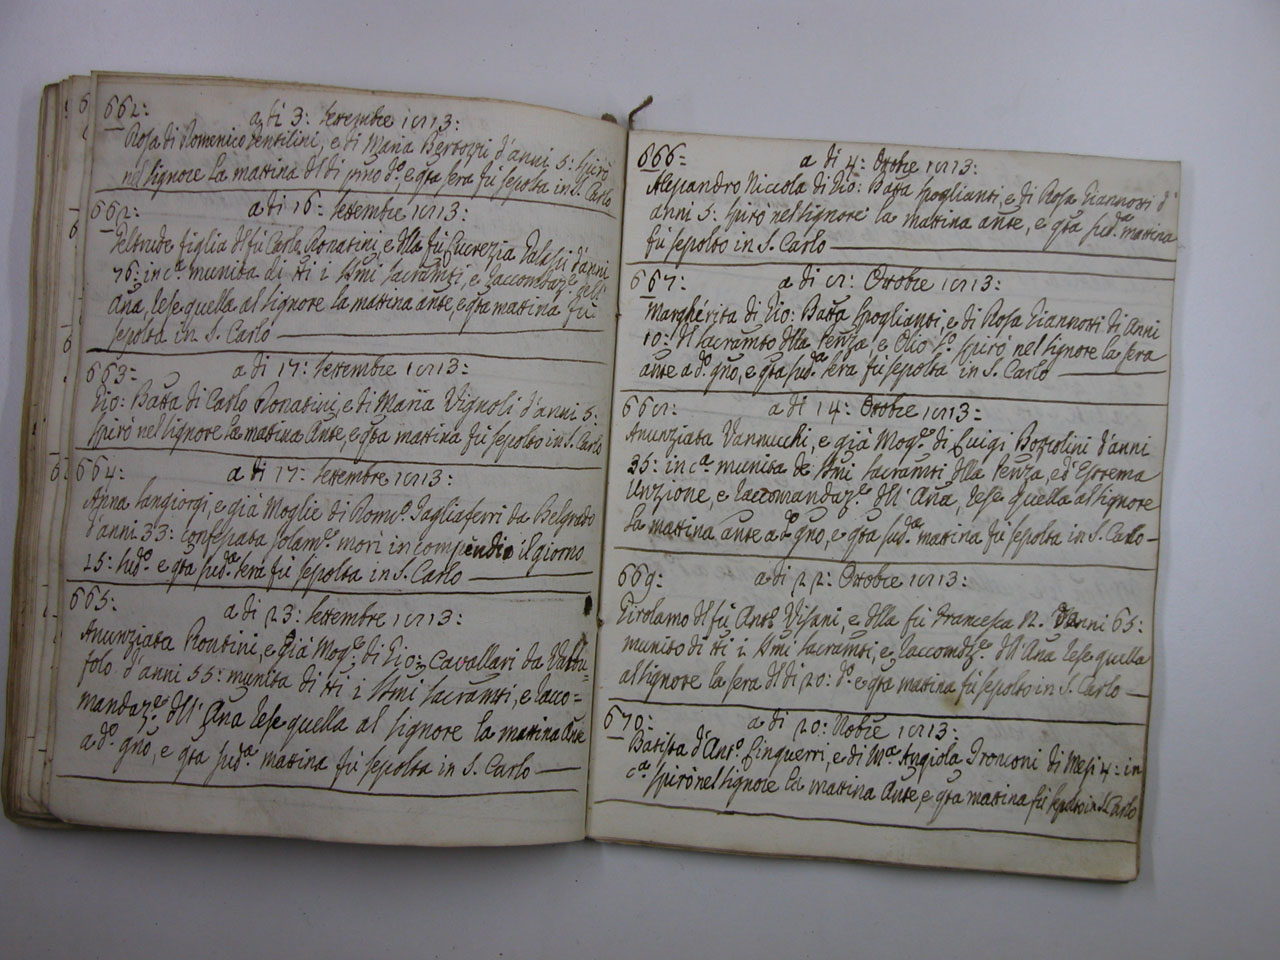 662:
a dì 3: Settembre 1813:
Rosa di Domenico Pentilini, e di Maria Bertozzi d'anni 5: spirò
nel Signore la mattina di dì pmo do., e qta sera fù sepolta in S. Carlo
662:
a dì 16: Settembre 1813:
Geltrude figlia del fù Carlo Donatini, e della fù Lucrezia d'anni
76: in ca. munita di tti i SSmi Sacramti, e raccomdaze. dell'
Aña, rese quella al Signore la mattina ante, e qta mattina fù
sepolta in S. Carlo
663:
a dì 17: Settembre 1813:
Gio: Batta di Carlo Donatini, e di Maria Vignoli d'anni 5:
spirò nel Signore la mattina Ante, e qta mattina fù sepolta in S. Carlo
664:
a dì 17: Settembre 1813:
Anna Sangiorgi, e già Moglie di Romo. Tagliaferri da Belgrado
d'anni 33: confessata solame. morì in compendio il giorno
15: sudo. e qta suda. sera fù sepolta in S. Carlo
665:
a dì 23: Settembre 1813:
Anunziata Rontini, e già Moge. di Gio: Cavallari da
d'anni 55: munita di tti i SSmi Sacramti, e racco=
mandaze. dell'Aña rese quella al Signore la mattina Ante
a do. gno, e qta suda. mattina fù sepolta in S. Carlo
666:
a dì 4: Ottobre 1813:
Alessandro Niccola di Gio: Batta Spoglianti, e di Rosa Giannotti d'
anni 5: spirò nel Signore la mattina ante, e qta suda. mattina
fù sepolto in S. Carlo
667:
a dì 8: Ottobre 1813:
Margherita di Gio: Batta Spoglianti, e di Rosa Giannotti di Anni
10: del Sacramto della Penza, e Olio So. spirò nel Signore la sera
ante a do. gno, e qta suda. sera fù sepolta in S. Carlo
668:
a dì 14: Ottobre 1813:
Anunziata Vannucchi, e già Moge. di Luigi Bozzolini d'anni
35: in ca. munita de SSmi Sacramti della Penza, ed Estrema
Unzione, e raccomandaze. dell'Aña, rese quella al Signore
la mattina ante a do. gno, e qta suda. mattina fù sepolta in S. Carlo
669:
a dì 22: Ottobre 1813:
Girolamo del fù Anto. Visani, e della fù Francesca N. d'Anni 65:
munito di tti i SSmi Sacramti, e raccomdze. dell'Aña rese quella
al Signore la sera del dì 20: do. e qta mattina fù sepolto in S. Carlo
670:
a dì 20: Nobre 1813:
Batista d'Anto. Linguerri, e di Ma. Angiola Tronconi di Mesi 4: in
ca. spirò nel Signore la mattina Ante, e qta mattina fù sepolto in S. Carlo